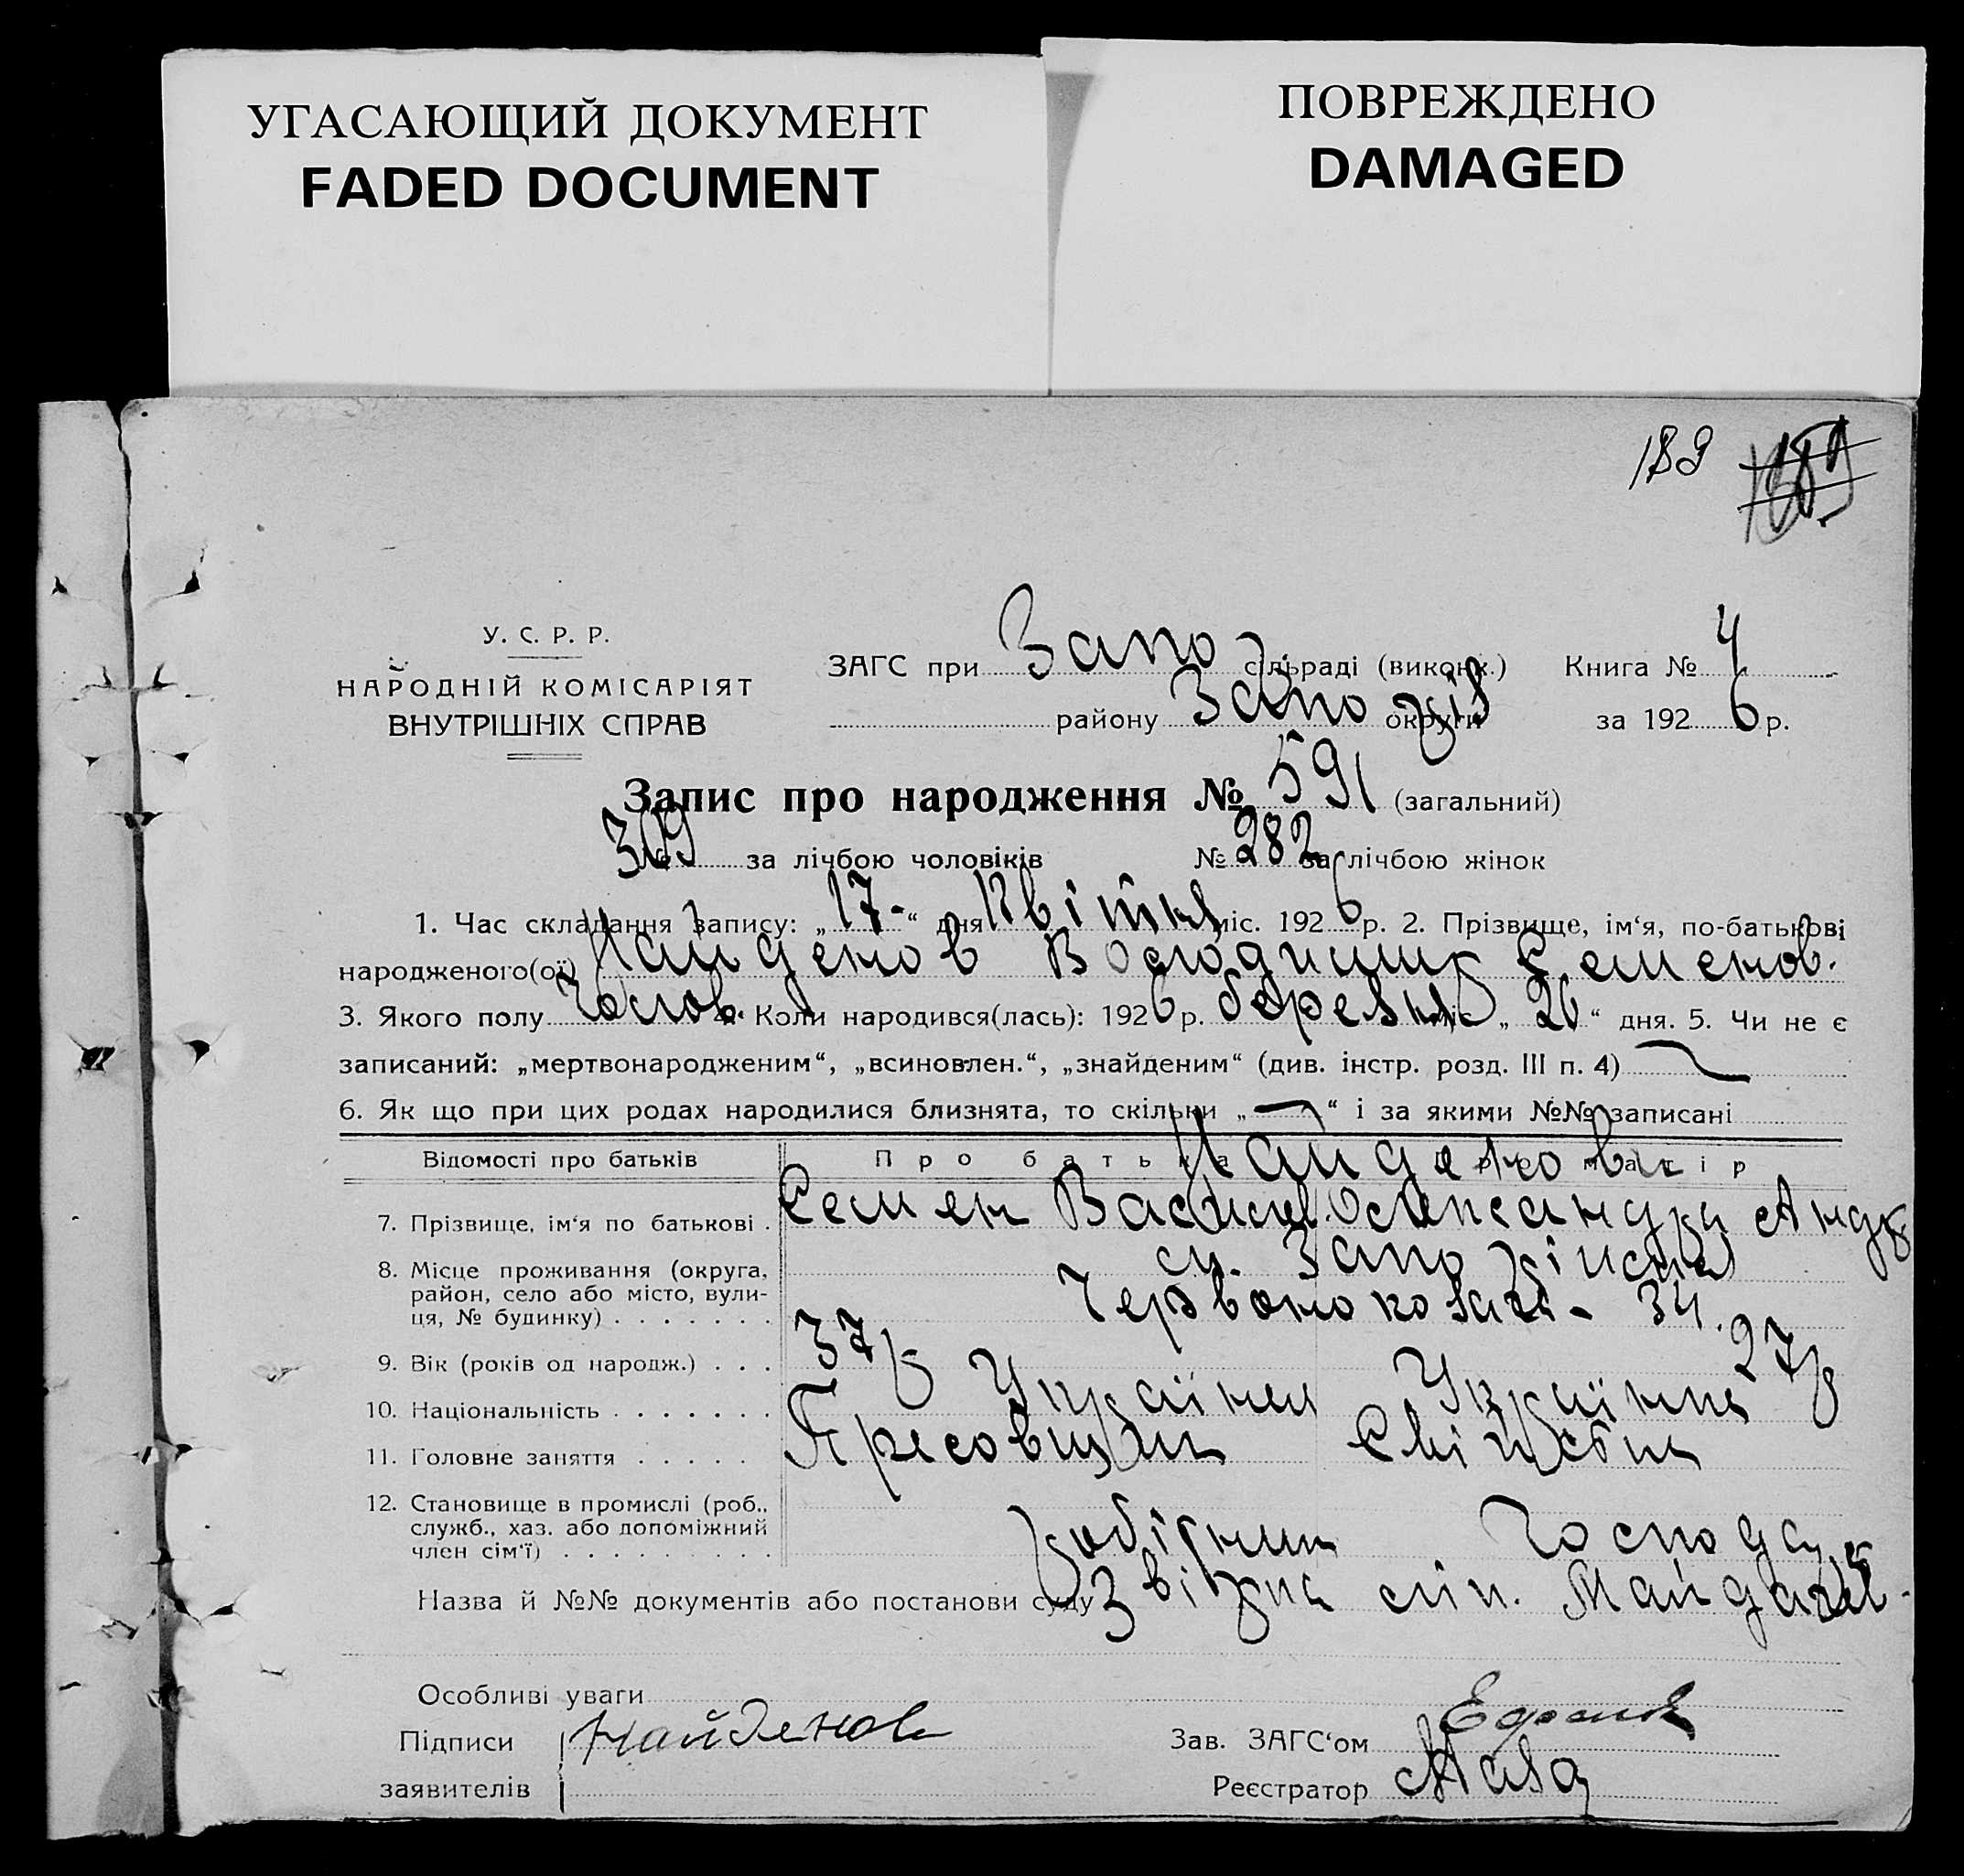 УГАСАЮЩИЙ ДОКУМЕНТ
FADED DOCUMENT
ПОВРЕЖДЕНО
DAMAGED
189
У. С. Р. Р.
НАРОДНІЙ КОМІСАРІЯТ
ВНУТРІШНІХ СПРАВ
ЗАГС при Запоз сільраді (виконк.) Книга № 4
району Запо округи за 1926 р.
Запис про народження № 591 (загальний)
309 за лічбою чоловіків № 282 за лічбою жінок
1. Час складання запису: „17-“ дня Квітня міс. 1926 р. 2. Прізвище, ім‘я, по-батькові
народженого(ої) Найденов Володимир Семенов.
3. Якого полу Чолов. 4. Коли народився(лась): 1926 р. березня міс. „26“ дня. 5. Чи не є
записаний: „мертвонародженим“, „всиновлен.“, „знайденим“ (див. інстр. розд. III п. 4)
6. Як що при цих родах народилися близнята, то скільки „—“ і за якими №№ записані
Відомості про батьків Про батька Про матір
Найденови
7. Прізвище, ім‘я по батькові . Семен Васильов. Олександра Андр
8. Місце проживання (округа, район, село або місто, вулиця, № будинку) . . . . . . . м. Запоріжжя
Червонокозача - 34.
9. Вік (років од народж.) . . . 37 27
10. Національність . . . . . . . Українец Українка
11. Головне заняття . . . . . Пресовщик
12. Становище в промислі (роб., служб., хаз. або допоміжний член сім‘ї) . . . . . . . . . Робітник Господар
Назва й №№ документів або постанови суду Звірка
Особливі уваги
Підписи Найденов Зав. ЗАГС‘ом
заявителів Реєстратор